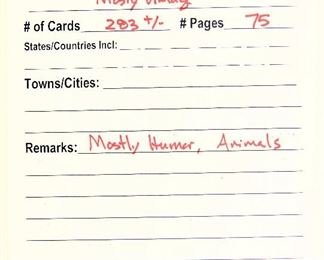 # of Cards 283 +/- # Pages 75
States/Countries Incl:
Towns/Cities:
Remarks: Mostly Humor, Animals